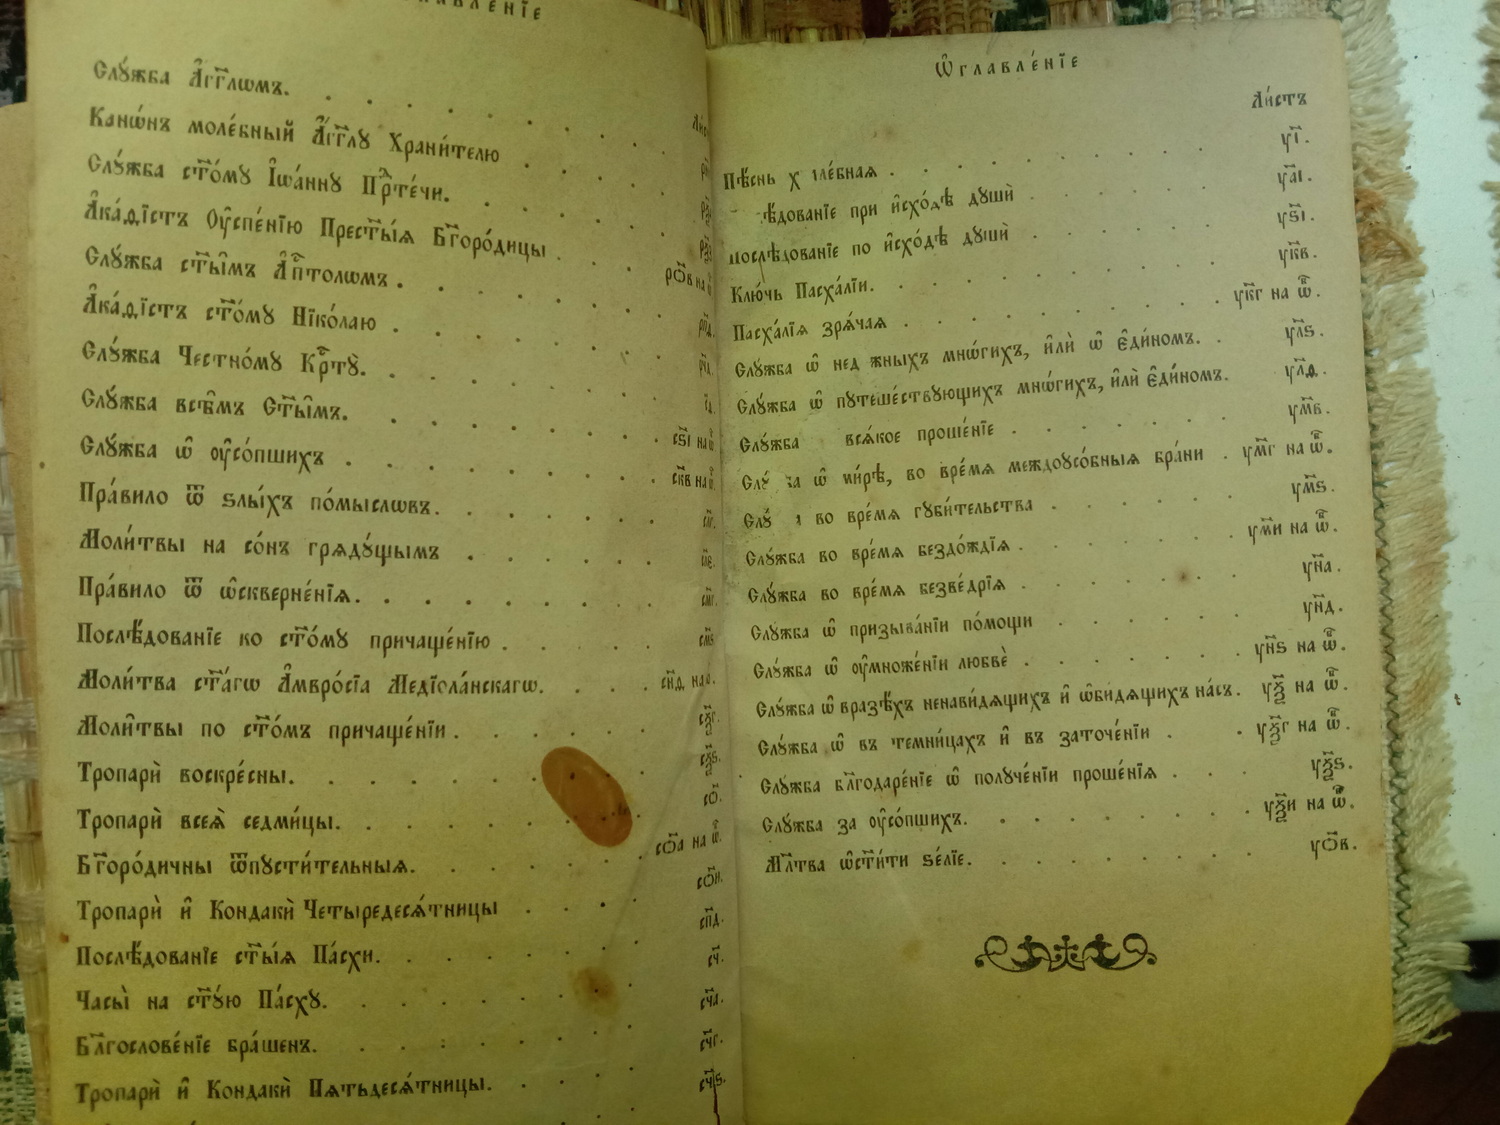 Слꙋ́жба А҆́гг҃лѡмъ.
Канѡ́нъ моле́бный А҆́гг҃лꙋ Храни́телю
Слꙋ́жба ст҃о́мꙋ І҆ѡа́ннꙋ Прⷣте́чи.
А҆ка́ѳїстъ Оу҆спе́нїю Прест҃ы́ѧ Бг҃оро́дицы
Слꙋ́жба ст҃ы̑мъ А҆пⷭ҇толѡмъ.
А҆ка́ѳїстъ ст҃о́мꙋ Нїко́лаю
Слꙋ́жба Честно́мꙋ Крⷭ҇тꙋ̀.
Слꙋ́жба всѣ̑мъ Ст҃ы̑мъ.
Слꙋ́жба ѡ҆ оу҆со́пшихъ
Пра́вило ѿ ѕлы́хъ по́мыслѡвъ.
Моли́твы на со́нъ грѧдꙋ́щымъ
Пра́вило ѿ ѡ҆скверне́нїѧ.
Послѣ́дованїе ко ст҃о́мꙋ причаще́нїю
Моли́тва ст҃а́гѡ А҆мвро́сїа Медїѡла́нскагѡ.
Моли̑твы по ст҃о́мъ причаще́нїи.
Тропарѝ воскре́сны.
Тропарѝ всеѧ̀ седми́цы.
Бг҃оро́дичны ѿпꙋсти́тельныѧ.
Тропарѝ и҆ Кондакѝ Четыредесѧ́тницы
Послѣ́дованїе ст҃ы́ѧ Па́схи.
Часы̀ на ст҃ꙋ́ю Па́схꙋ.
Бл҃гослове́нїе бра́шенъ.
Тропарѝ и҆ Кондакѝ Пѧтьдесѧ́тницы.
Ѡ҆главле́нїе
Ли́стъ
Пѣ́снь х ле́бная . у҃і.
ѣдованїе при и҆схо́дѣ дꙋшѝ у҃аі.
послѣдованїе по и҆схо́дѣ дꙋшѝ у҃ѕі.
Клю́чь Пасха́лїи. у҃кв.
Пасха́лїѧ зрѧ́чаѧ у҃кг на ѡ҆б.
Слꙋ́жба ѡ҆ нед жныхъ мнѡ́гихъ, и҆лѝ ѡ҆ є҆ди́номъ. у҃лѕ.
Слꙋ́жба ѡ҆ пꙋтеше́ствꙋющихъ мнѡ́гихъ, и҆лѝ є҆ди́номъ. у҃лѳ.
Слꙋ́жба всѧ́кое проше́нїе у҃мв.
Слꙋ ба ѡ҆ ми́рѣ, во вре́мѧ междоꙋсо́бныѧ бра́ни у҃мг на ѡ҆б.
Слꙋ́ во вре́мѧ гꙋби́тельства у҃мѕ.
Слꙋ́жба во вре́мѧ бездо́ждїѧ у҃ми на ѡ҆б.
Слꙋ́жба во вре́мѧ безве́дрїѧ у҃на.
Слꙋ́жба ѡ҆ призыва́нїи по́мощи у҃нд.
Слꙋ́жба ѡ҆ оу҆множе́нїи любвѐ у҃нѕ на ѡ҆б.
Слꙋ́жба ѡ҆ вразѣ́хъ ненави́дѧщихъ и҆ ѡ҆би́дѧщихъ на́съ. у҃ѯ на ѡ҆б.
Слꙋ́жба ѡ҆ въ темни́цахъ и҆ въ заточе́нїи у҃ѯг на ѡ҆б.
Слꙋ́жба бл҃годаре́нїе ѡ҆ полꙋче́нїи проше́нїѧ у҃ѯѕ.
Слꙋ́жба за оу҆со́пшихъ. у҃ѯи на ѡ҆б.
Мл҃тва ѡ҆ст҃и́ти ѕе́лїе. у҃ов.